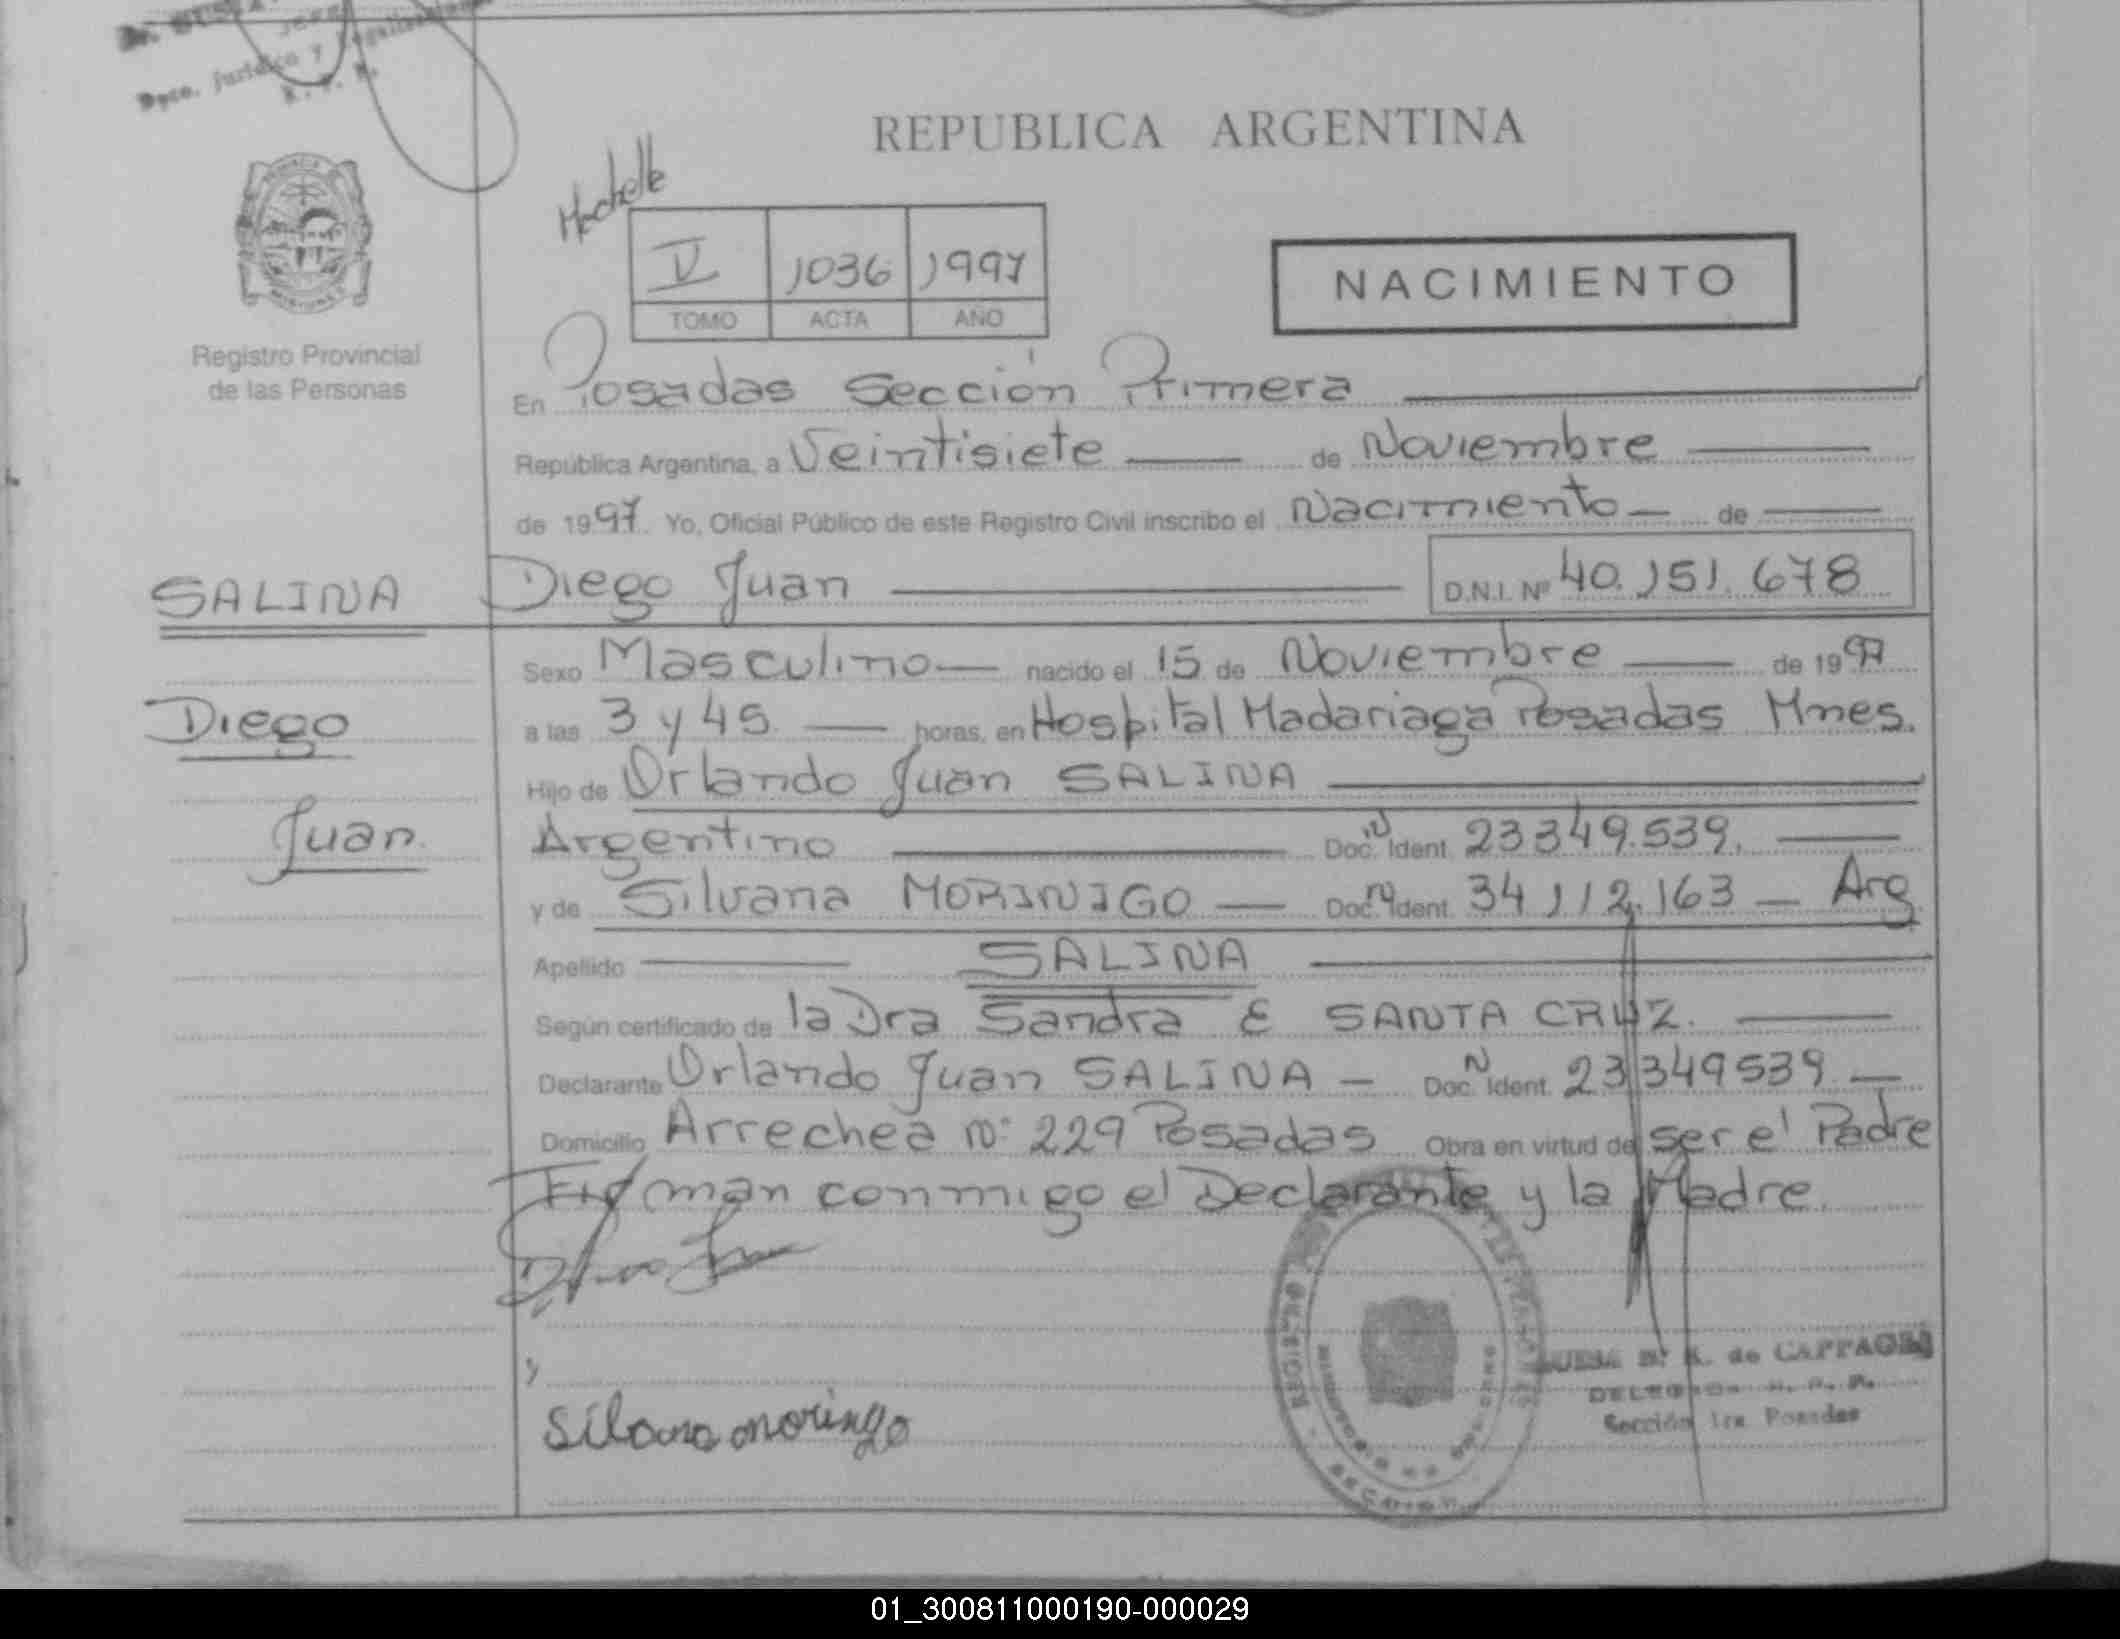 Dr.
Dpto. Jurídico y Legalizaciones
R. P. P.
REPUBLICA ARGENTINA
V 1036 1997
TOMO ACTA AÑO
NACIMIENTO
Registro Provincial
de las Personas
En Posadas Sección Primera
República Argentina, a Veintisiete de Noviembre
de 1997 Yo, Oficial Público de este Registro Civil inscribo el Nacimiento de
SALINA Diego Juan D.N.I. Nº 40.151.678
Sexo Masculino nacido el 15 de Noviembre de 1997
Diego
a las 3 y 45 horas, en Hospital Madariaga Posadas Mnes.
Hijo de Orlando Juan SALINA
Juan
Argentino Doc. N Ident. 23349.539.
y de Silvana MORINIGO Doc. N Ident. 34112.163 Arg
Apellido SALINA
Según certificado de la Dra Sandra E SANTA CRUZ.
Declarante Orlando Juan SALINA Doc. N Ident. 23349539
Domicilio Arrechea Nº 229 Posadas Obra en virtud de ser el Padre
Firman conmigo el Declarante y la Madre.
y
Silvana moringo
de CAPPAGLI
DELEGADA R. P. P.
Sección 1ra Posadas
01_300811000190-000029